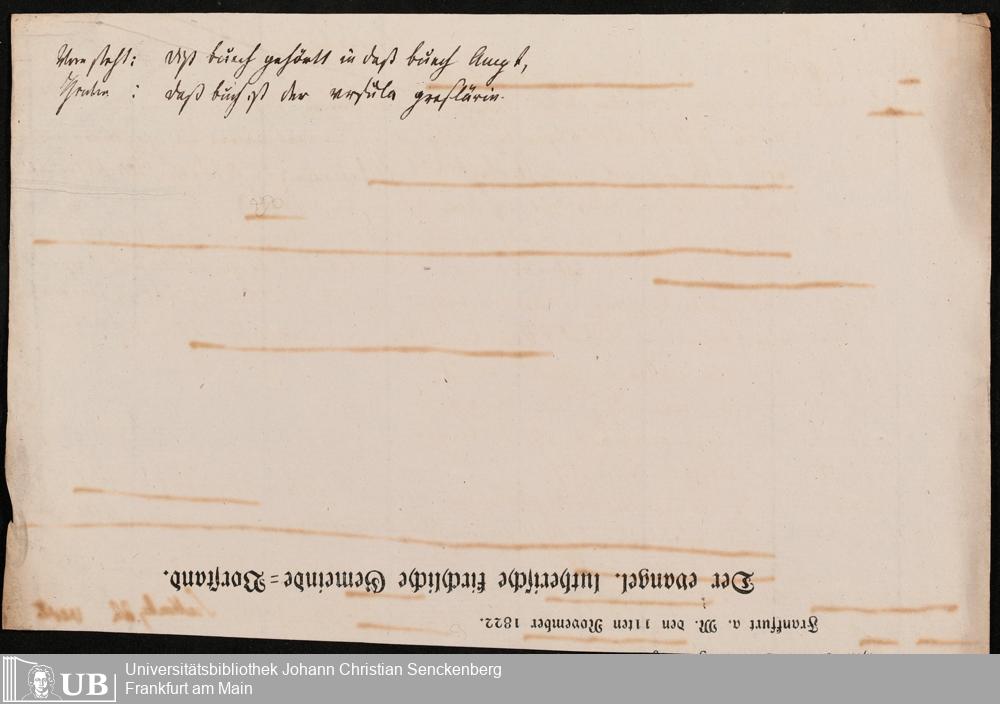 Vorn steht: diß buech gehörtt in daß buech Ampt,
hinten : daß buch ist der vrsula greslärin.
450
Der evangel. lutherische kirchliche Gemeinde=Vorstand.
Frankfurt a. M. den 11ten November 1822.
UB Universitätsbibliothek Johann Christian Senckenberg
Frankfurt am Main